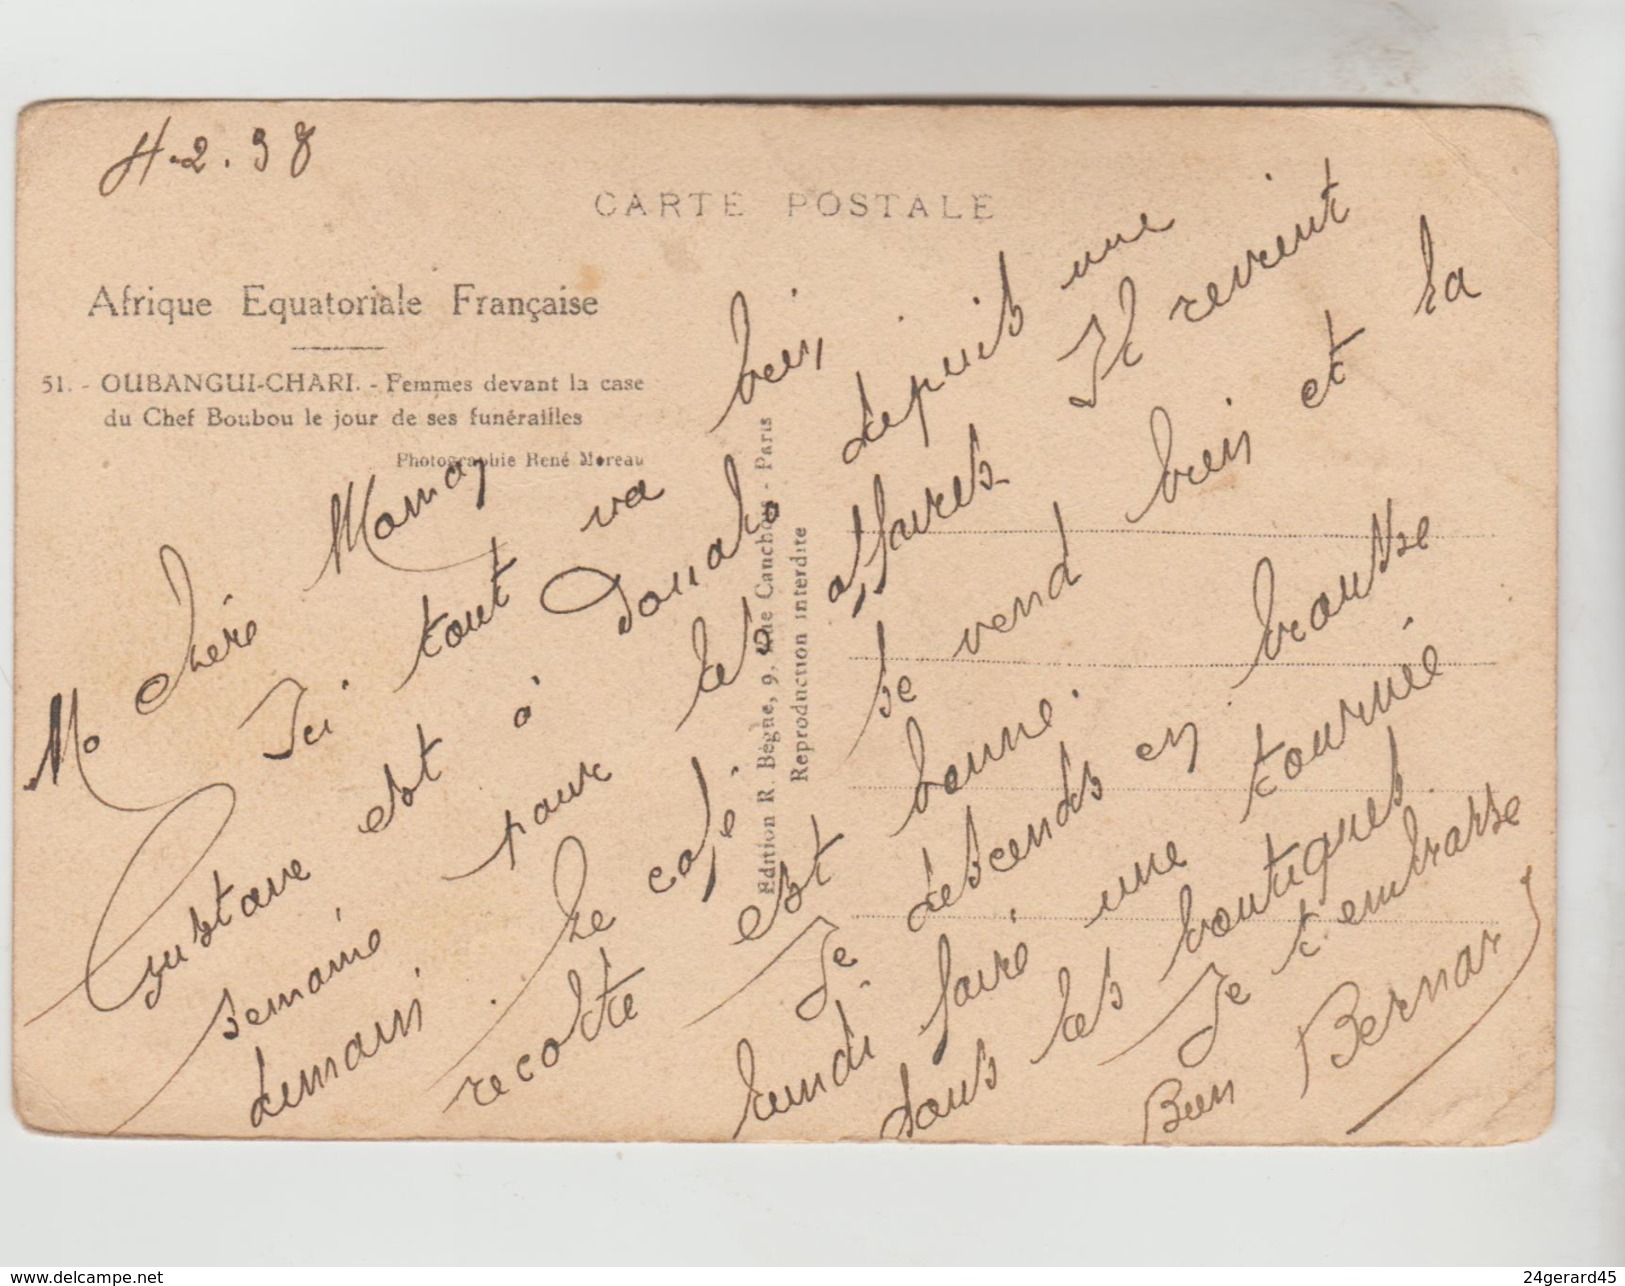 4.2.38
CARTE POSTALE
Afrique Equatoriale Française
51. - OUBANGUI-CHARI. - Femmes devant la case
du Chef Boubou le jour de ses funérailles
Photographie René Moreau
Edition R. Bègue, 9, Rue Canchois - Paris
Reproduction interdite
Ma chère Maman
Ici tout va bien
Gustave est à Douala depuis une
semaine pour les affaires. Il revient
demain. Le café se vend bien et la
recolte est bonne.
Je descends en brousse
lundi faire une tournée
dans les boutiques.
Je t'embrasse
Bien Bernar
www.delcampe.net
24gerard45